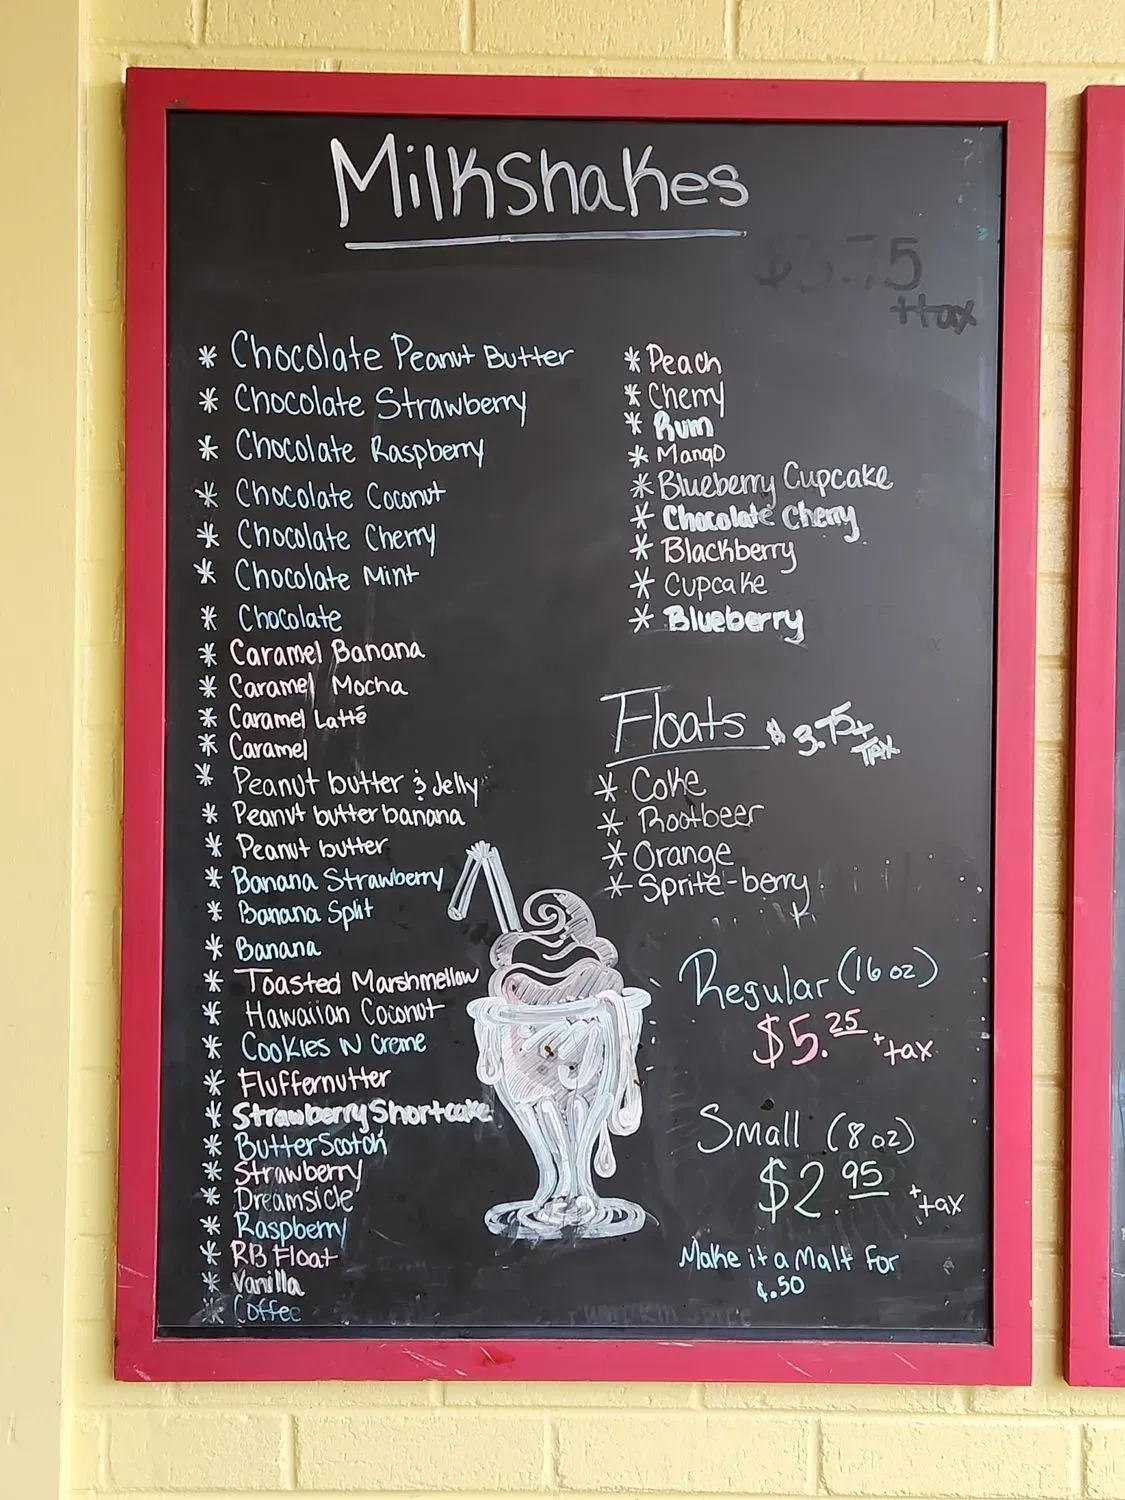 Milkshakes
$3.75
+tax
* Chocolate Peanut Butter
* Chocolate Strawberry
* Chocolate Raspberry
* Chocolate Coconut
* Chocolate Cherry
* Chocolate Mint
* Chocolate
* Caramel Banana
* Caramel Mocha
* Caramel Latté
* Caramel
* Peanut butter & Jelly
* Peanut butter banana
* Peanut butter
* Banana Strawberry
* Banana Split
* Banana
* Toasted Marshmellow
* Hawaiian Coconut
* Cookies N Creme
* Fluffernutter
* Strawberry Shortcake
* ButterScotch
* Strawberry
* Dreamsicle
* Raspberry
* RB Float
* Vanilla
* Coffee
* Peach
* Cherry
* Rum
* Mango
* Blueberry Cupcake
* Chocolate Cherry
* Blackberry
* Cupcake
* Blueberry
Floats $3.75+
TAX
* Coke
* Rootbeer
* Orange
* Sprite-berry
Regular (16 oz)
$5.25 +tax
Small (8 oz)
$2.95 +tax
Make it a Malt for
¢.50
Pumpkin Spice